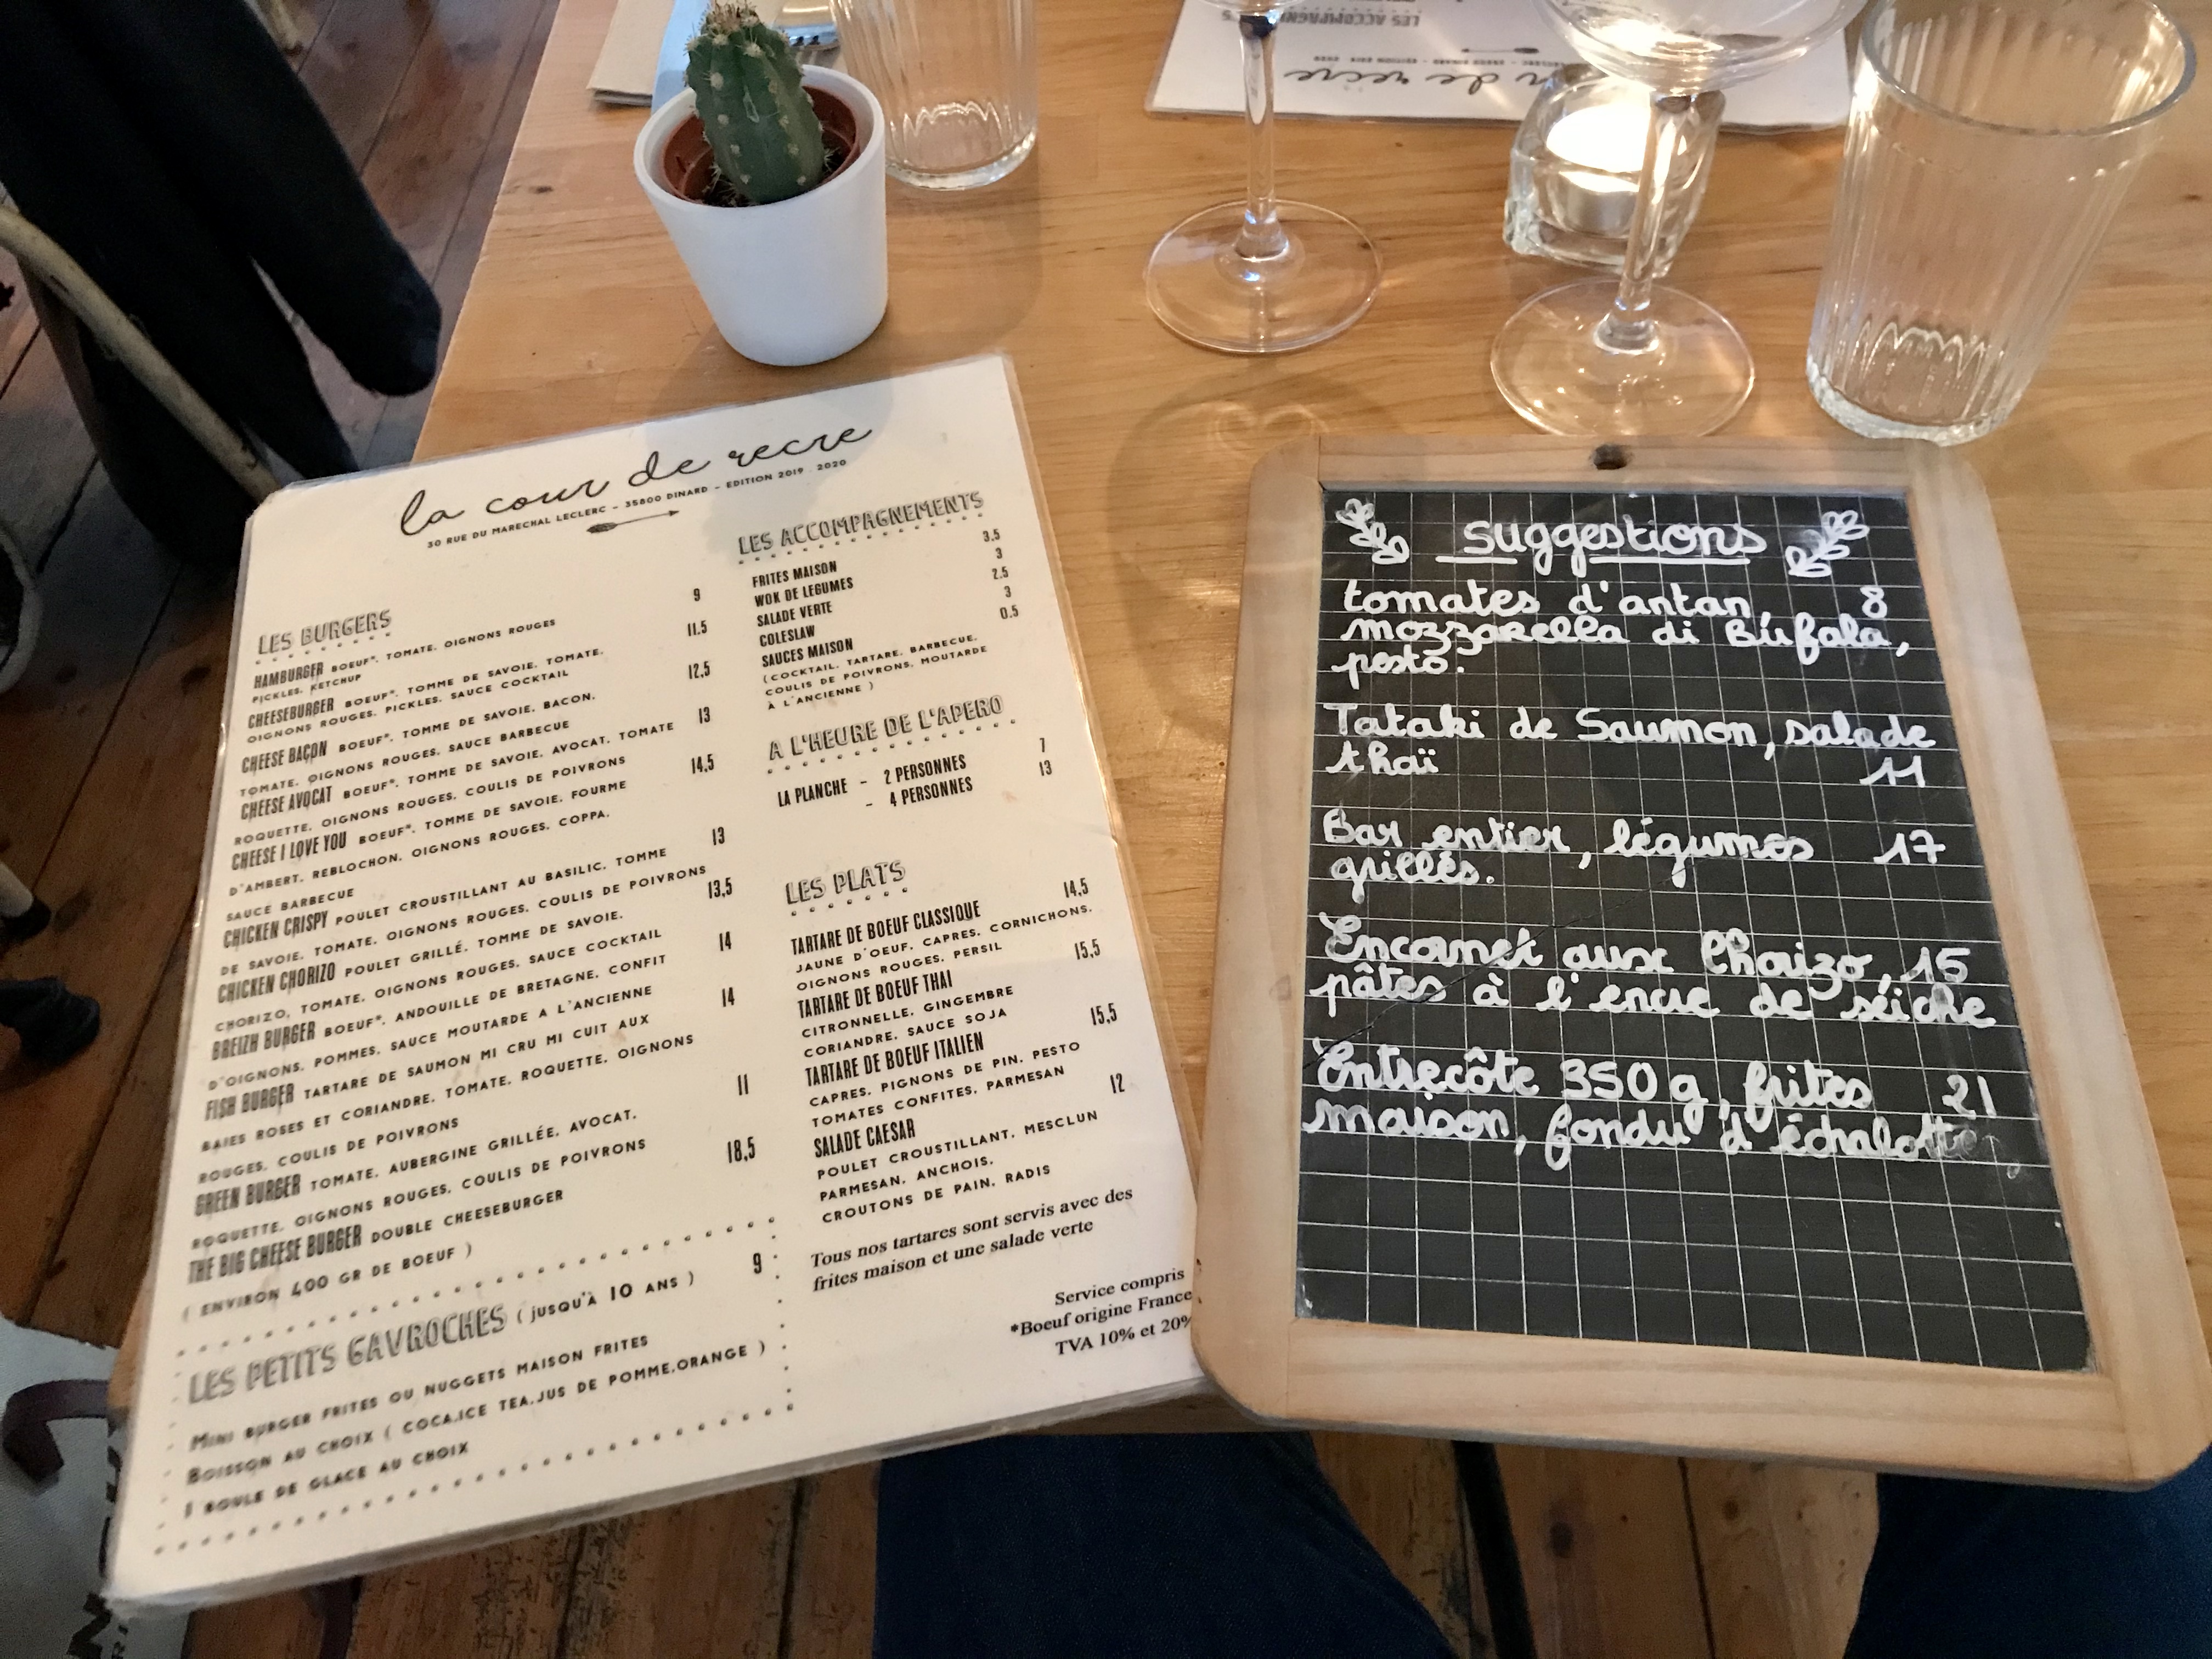 la cour de recre
30 RUE DU MARECHAL LECLERC - 35800 DINARD - EDITION 2019 . 2020
LES BURGERS
HAMBURGER BOEUF*, TOMATE, OIGNONS ROUGES 9
PICKLES, KETCHUP
CHEESEBURGER BOEUF*, TOMME DE SAVOIE, TOMATE, 11.5
OIGNONS ROUGES, PICKLES, SAUCE COCKTAIL
CHEESE BACON BOEUF*, TOMME DE SAVOIE, BACON, 12,5
TOMATE, OIGNONS ROUGES, SAUCE BARBECUE
CHEESE AVOCAT BOEUF*, TOMME DE SAVOIE, AVOCAT, TOMATE 13
ROQUETTE, OIGNONS ROUGES, COULIS DE POIVRONS
CHEESE I LOVE YOU BOEUF*, TOMME DE SAVOIE, FOURME 14,5
D'AMBERT, REBLOCHON, OIGNONS ROUGES, COPPA,
SAUCE BARBECUE
CHICKEN CRISPY POULET CROUSTILLANT AU BASILIC, TOMME 13
DE SAVOIE, TOMATE, OIGNONS ROUGES, COULIS DE POIVRONS
CHICKEN CHORIZO POULET GRILLÉ, TOMME DE SAVOIE, 13,5
CHORIZO, TOMATE, OIGNONS ROUGES, SAUCE COCKTAIL
BREIZH BURGER BOEUF*, ANDOUILLE DE BRETAGNE, CONFIT 14
D'OIGNONS, POMMES, SAUCE MOUTARDE A L'ANCIENNE
FISH BURGER TARTARE DE SAUMON MI CRU MI CUIT AUX 14
BAIES ROSES ET CORIANDRE, TOMATE, ROQUETTE, OIGNONS
ROUGES, COULIS DE POIVRONS
GREEN BURGER TOMATE, AUBERGINE GRILLÉE, AVOCAT, 11
ROQUETTE, OIGNONS ROUGES, COULIS DE POIVRONS
THE BIG CHEESE BURGER DOUBLE CHEESEBURGER 18,5
( ENVIRON 400 GR DE BOEUF )
LES PETITS GAVROCHES ( jUSQU'À 10 ANS ) 9
MINI BURGER FRITES OU NUGGETS MAISON FRITES
BOISSON AU CHOIX ( COCA,ICE TEA,JUS DE POMME,ORANGE )
1 BOULE DE GLACE AU CHOIX
LES ACCOMPAGNEMENTS
FRITES MAISON 3.5
WOK DE LEGUMES 3
SALADE VERTE 2.5
COLESLAW 3
SAUCES MAISON 0.5
(COCKTAIL, TARTARE, BARBECUE,
COULIS DE POIVRONS, MOUTARDE
À L'ANCIENNE )
A L'HEURE DE L'APERO
LA PLANCHE - 2 PERSONNES 7
- 4 PERSONNES 13
LES PLATS
TARTARE DE BOEUF CLASSIQUE 14,5
JAUNE D'OEUF, CAPRES, CORNICHONS,
OIGNONS ROUGES, PERSIL
TARTARE DE BOEUF THAI 15,5
CITRONNELLE, GINGEMBRE
CORIANDRE, SAUCE SOJA
TARTARE DE BOEUF ITALIEN 15,5
CAPRES, PIGNONS DE PIN, PESTO
TOMATES CONFITES, PARMESAN
SALADE CAESAR 12
POULET CROUSTILLANT, MESCLUN
PARMESAN, ANCHOIS,
CROUTONS DE PAIN, RADIS
Tous nos tartares sont servis avec des
frites maison et une salade verte
Service compris
*Boeuf origine France
TVA 10% et 20%
Suggestions
tomates d'antan, 8
mozzarella di Búfala,
pesto.
Tataki de Saumon, salade
thaï 11
Bar entier, légumes 17
grillés.
Encornet aux Chorizo, 15
pâtes à l'encre de séiche
Entrecôte 350g, frites 21
maison, fondu d'échalotte
de recre
LES ACCOMPAGNE